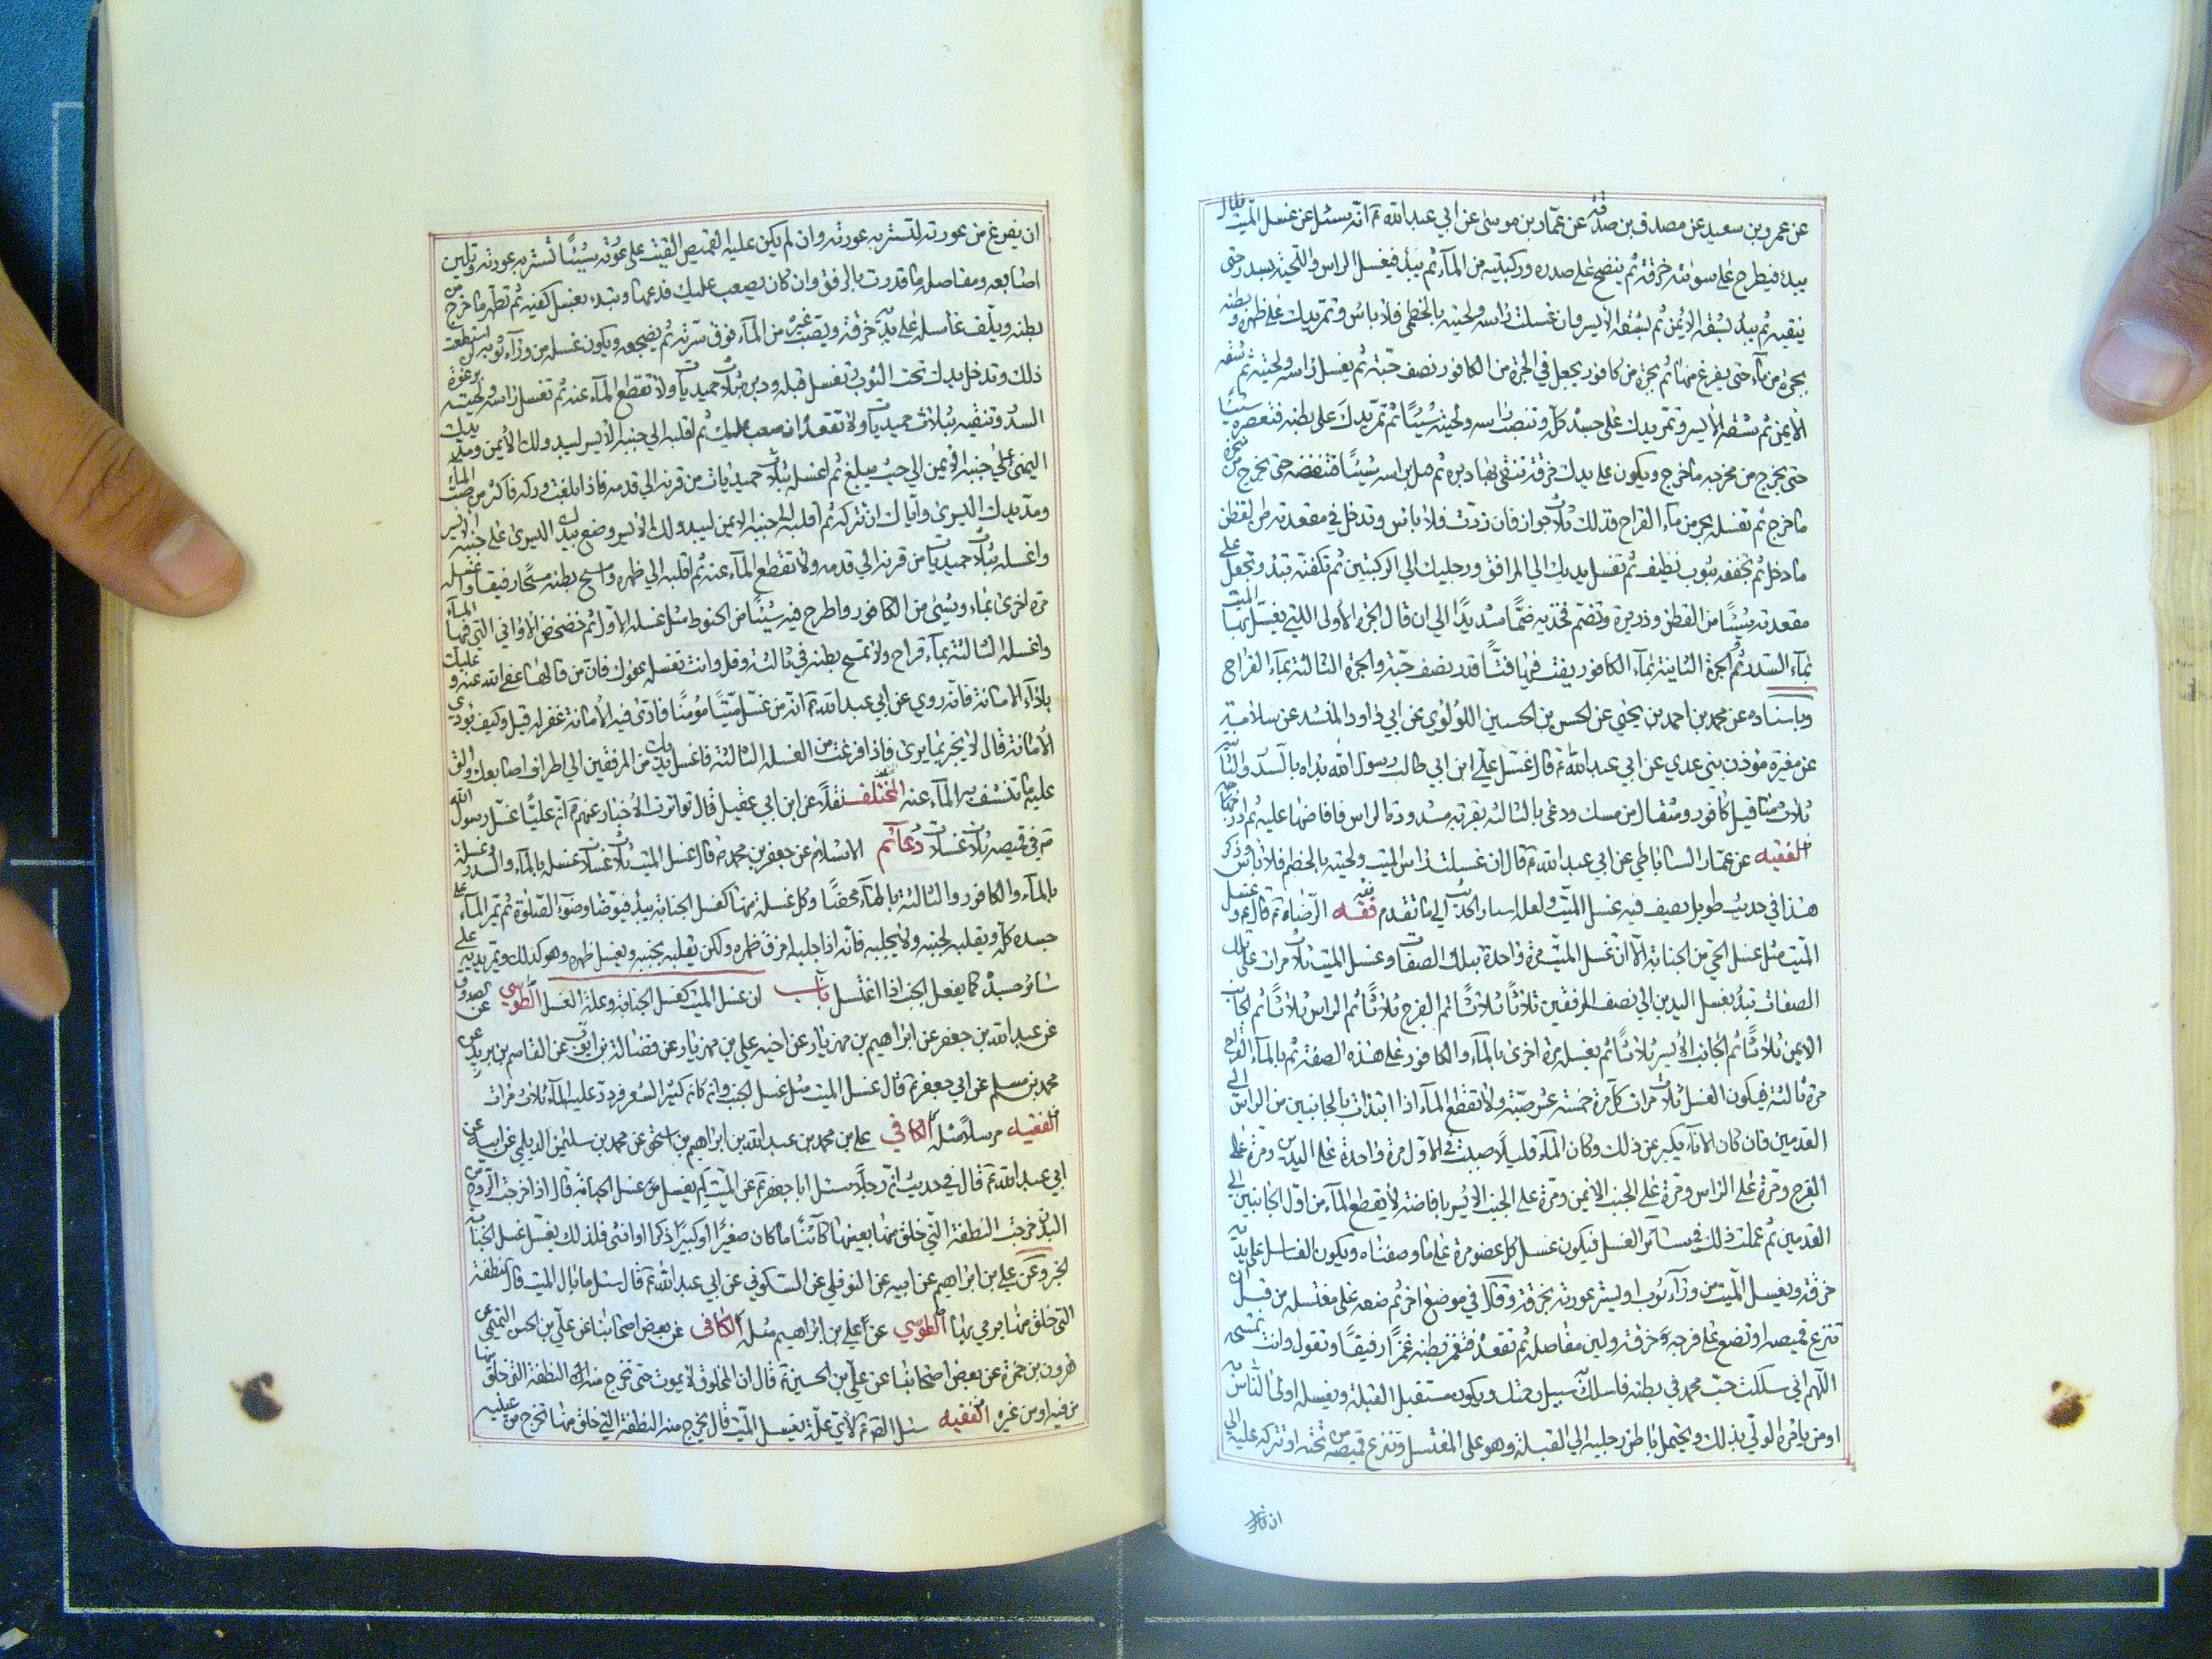 عن عمرو بن سعيد عن مصدق بن صدقة عن عمار بن موسى عن ابي عبد الله ع انه سئل عن غسل الميت فقال
يبدء فيطرح على سوئته خرقة ثم ينضح على صدره وركبتيه من المآء ثم يبدء فيغسل الراس واللحية بسدر حتى
ينقيه ثم يبدء بشقه الايمن ثم بشقه الايسر وان غسلت راسه ولحيته بالخطمي فلا باس وتمر يدك على ظهره وبطنه
بجرة من مآء حتى يفرغ منها ثم بجرة من كافور يجعل في الجرة من الكافور نصف حبة ثم يغسل راسه ولحيته ثم شقه
الايمن ثم شقه الايسر وتمر يدك على جسده كله وتنصب راسه ولحيته شيئا ثم تمر يدك على بطنه فتعصره شيئا
حتى يخرج من مخرجه ما خرج ويكون على يدك خرقة تنقي بها دبره ثم ميل براسه شيئا فتنفضه حتى يخرج من منخره
ما خرج ثم تغسله بجرة من مآء القراح فذلك ثلاث جرار فان زدت فلا باس وتدخل في مقعدته من القطن
ما دخل ثم تجففه بثوب نظيف ثم تغسل يديك الى المرافق ورجليك الى الركبتين ثم تكفنه تبدء وتجعل على
مقعدته شيئا من القطن وذريرة وتضم فخذيه ضما شديدا الى ان قال الجرة الاولى التي يغسل بها الميت
بمآء السدر ثم الجرة الثانية بمآء الكافور يفت فيها فتا قدر نصف حبة والجرة الثالثة بمآء القراح
وباسناده عن محمد بن احمد بن يحيى عن الحسن بن الحسين اللؤلؤي عن ابي داود المنشد عن سلامة
عن مغيرة مؤذن بني عدي عن ابي عبد الله ع قال غسل علي ابن ابي طالب رسول الله بداه بالسدر والثانية
ثلاث مثاقيل كافور ومثقال من مسك ودعى بالثالثة بقربة مشدودة الراس فافاضها عليه ثم ادرجه
الفقيه عن عمار الساباطي عن ابي عبد الله ع قال ان غسلت راس الميت ولحيته بالخطم فلا باس وذكر
هذا في حديث طويل يصف فيه غسل الميت ولعله اشار الحديث الى ما تقدم فقه الرضا ع قال ع وغسل
الميت مثل غسل الحي من الجنابة الا ان غسل الميت مرة واحدة بتلك الصفات وغسل الميت ثلاث مرات على تلك
الصفات تبدء بغسل اليدين الى نصف المرفقين ثلاثا ثلاثا ثم الفرج ثلاثا ثم الراس ثلاثا ثم الجانب
الايمن ثلاثا ثم الجانب الايسر ثلاثا ثم يغسل مرة اخرى بالمآء والكافور على هذه الصفة ثم بالمآء القراح
مرة ثالثة فيكون الغسل ثلاث مرات كل مرة خمسة عشر صبة ولا تقطع المآء اذا ابتدات بالجانبين من الراس الى
القدمين فان كان الانآء يكبر عن ذلك وكان المآء قليلا صببت في الاول مرة واحدة على اليدين ومرة على
الفرج ومرة على الراس ومرة على الجنب الايمن ومرة على الجنب الايسر بافاضة لا يقطع المآء من اول الجانبين الى
القدمين ثم عملت ذلك في سائر الغسل فيكون غسل كل عضو مرة على ما وصفناه ويكون الغاسل على يديه
خرقة ويغسل الميت من ورآء ثوب او يستر عورته بخرقة وقال في موضع اخر ثم ضعه على مغتسله من قبل ان
تنزع قميصه او تضع على فرجه خرقة ولين مفاصله ثم تقعده فتغمز بطنه غمزا رفيقا وتقول وانت تمسحه
اللهم اني سلكت حب محمد في بطنه فاسلك به سبيل رحمتك ويكون مستقبل القبلة ويغسله اولى الناس به
او من يامره الولي بذلك ويجعل باطن رجليه الى القبلة وهو على المغتسل وتنزع قميصه من تحته او تتركه عليه الى
ان يفرغ من عورته لتستر به عورته وان لم يكن عليه القميص القيت على عورته شيئا تستر به عورته وتلين
اصابعه ومفاصله ما قدرت بالرفق وان كان يصعب عليك فدعها وتبدء بغسل كفيه ثم تطهر ما خرج من
بطنه ويلف غاسله على يديه خرقة ويصب غيره من المآء فوق سرته ثم يضجعه ويكون غسله من ورآء ثوبه ان استطعت
ذلك وتدخل يدك تحت الثوب تغسل قبله ودبره بثلاث حميديات ولا تقطع المآء عنه ثم تغسل راسه ولحيته برغوة
السدر وتتبعه بثلاث حميديات ولا تقعده ان صعب عليك ثم اقلبه الى جنبه الايسر ليبدو لك الايمن ومد يدك
اليمنى على جنبه الايمن الى حيث يبلغ ثم اغسله بثلاث حميديات من قرنه الى قدمه فاذا بلغت وركه فاكثر من صب المآء
ومد يدك اليسرى واياك ان تتركه ثم اقلبه الى جنبه الايمن ليبدو لك الايسر وضع يدك اليسرى على جنبه الايسر
واغسله بثلاث حميديات من قرنه الى قدمه ولا تقطع المآء عنه ثم اقلبه الى ظهره وامسح بطنه مسحا رفيقا واغسله
مرة اخرى بمآء وشيئ من الكافور واطرح فيه شيئا من الحنوط مثل غسله الاول ثم خضخض الاواني التي فيها المآء
واغسله الثالثة بمآء قراح ولا تمسح بطنه في ثالثة وقل وانت تغسله عفوك عفوك فان من قالها عفى الله عنه وعليك
بادآء الامانة فانه روي عن ابي عبد الله ع انه من غسل ميتا مؤمنا فادى فيه الامانة غفر له قيل وكيف يؤدي
الامانة قال لا يخبر بما يرى فاذا فرغت من الغسلة الثالثة فاغسل يديك من المرفقين الى اطراف اصابعك والق
عليه ما تنشف به المآء عنه المختلف نقلا عن ابن ابي عقيل قال تواترت الاخبار عنهم ع ان عليا غسل رسول الله
ص في قميصه ثلاث غسلات دعائم الاسلام عن جعفر بن محمد ع قال غسل الميت ثلاث غسلات غسلة بالمآء والسدر وغسلة
بالمآء والكافور والثالثة بالمآء محضا وكل غسلة منها كغسل الجنابة يبدء فيوضا وضوء الصلوة ثم يمر المآء على
جسده كله ويقلبه لجنبه ولا يجلبه فانه اذا اجلسه اندق ظهره ولكن يقلبه بجنبيه ويغسل ظهره وهو كذلك ويمر يديه على
سائر جسده كما يفعل الجنب اذا اغتسل باب ان غسل الميت كغسل الجنابة وعلة الغسل الطوسي عن الصدوق
عن عبد الله بن جعفر عن ابراهيم بن مهزيار عن اخيه علي بن مهزيار عن فضالة بن ايوب عن القاسم بن بريد عن
محمد بن مسلم عن ابي جعفر ع قال غسل الميت مثل غسل الجنب وان كان كثير الشعر فرد عليه المآء ثلاث مرات
الفقيه مرسلا مثله الكافي علي بن محمد بن عبد الله بن ابراهيم بن اسحق عن محمد بن سليمن الديلمي عن ابيه عن
ابي عبد الله ع قال في حديث ان رجلا سئل ابا جعفر ع عن الميت لم يغسل غسل الجنابة قال اذا خرجت الروح من
البدن خرجت النطفة التي خلق منها بعينها كائنا ما كان صغيرا او كبيرا ذكرا او انثى فلذلك يغسل غسل الجنابة
الخبر وعن علي بن ابراهيم عن ابيه عن النوفلي عن السكوني عن ابي عبد الله ع قال سئل ما بال الميت قال النطفة
التي خلق منها يرمي بها الطوسي عن علي بن ابراهيم مثله الكافي عن بعض اصحابنا عن علي بن الحسن الميثمي عن
هرون بن حمزة عن بعض اصحابنا عن علي بن الحسين ع قال ان المخلوق لا يموت حتى تخرج منه النطفة التي خلق منها
من فيه او من غيره الفقيه سئل الصادق ع لاي علة يغسل الميت قال يخرج منه النطفة التي خلق منها تخرج من عينيه